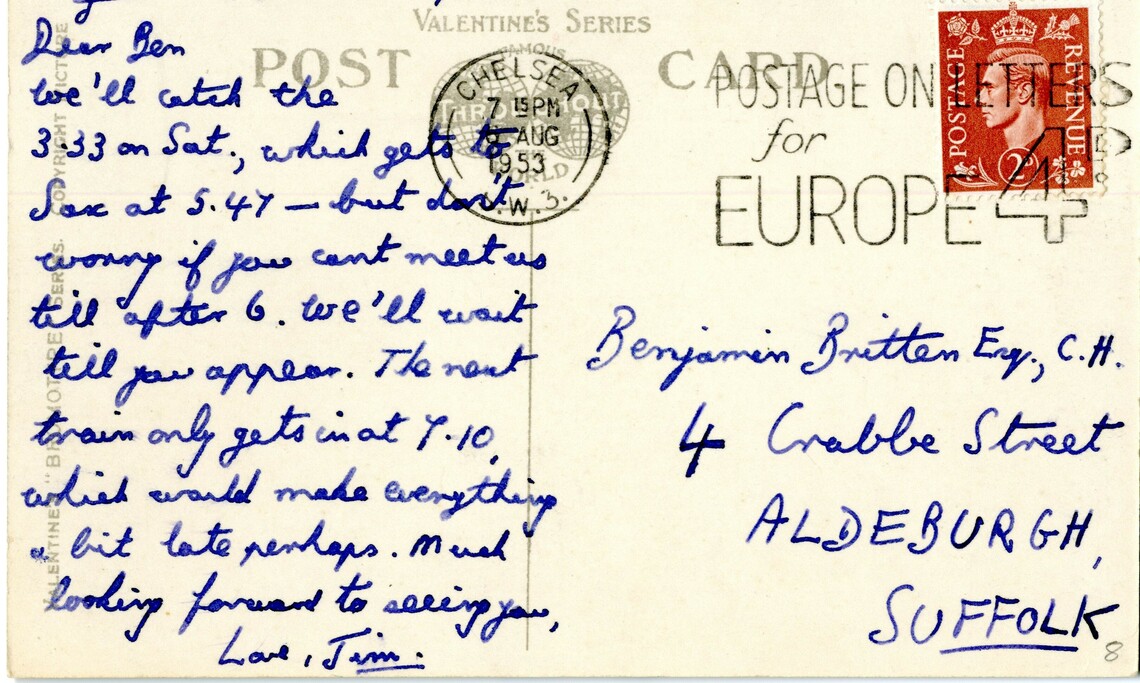 Dear Ben
We'll catch the
3.33 on Sat., which gets to
Sax at 5.47 — but don't
worry if you can't meet us
till after 6. We'll wait
till you appear. The next
train only gets in at 7.10,
which would make everything
a bit late perhaps. Much
looking forward to seeing you,
Love, Jim.
VALENTINE'S SERIES
POST CARD
FAMOUS
THROUGHOUT THE
WORLD
CHELSEA
7 15 PM
AUG
1953
S.W.3.
POSTAGE ON LETTERS
for
EUROPE 4D
POSTAGE REVENUE
2D
Benjamin Britten Esq., C.H.
4 Crabbe Street
ALDEBURGH,
SUFFOLK
8
COPYRIGHT PICTURE